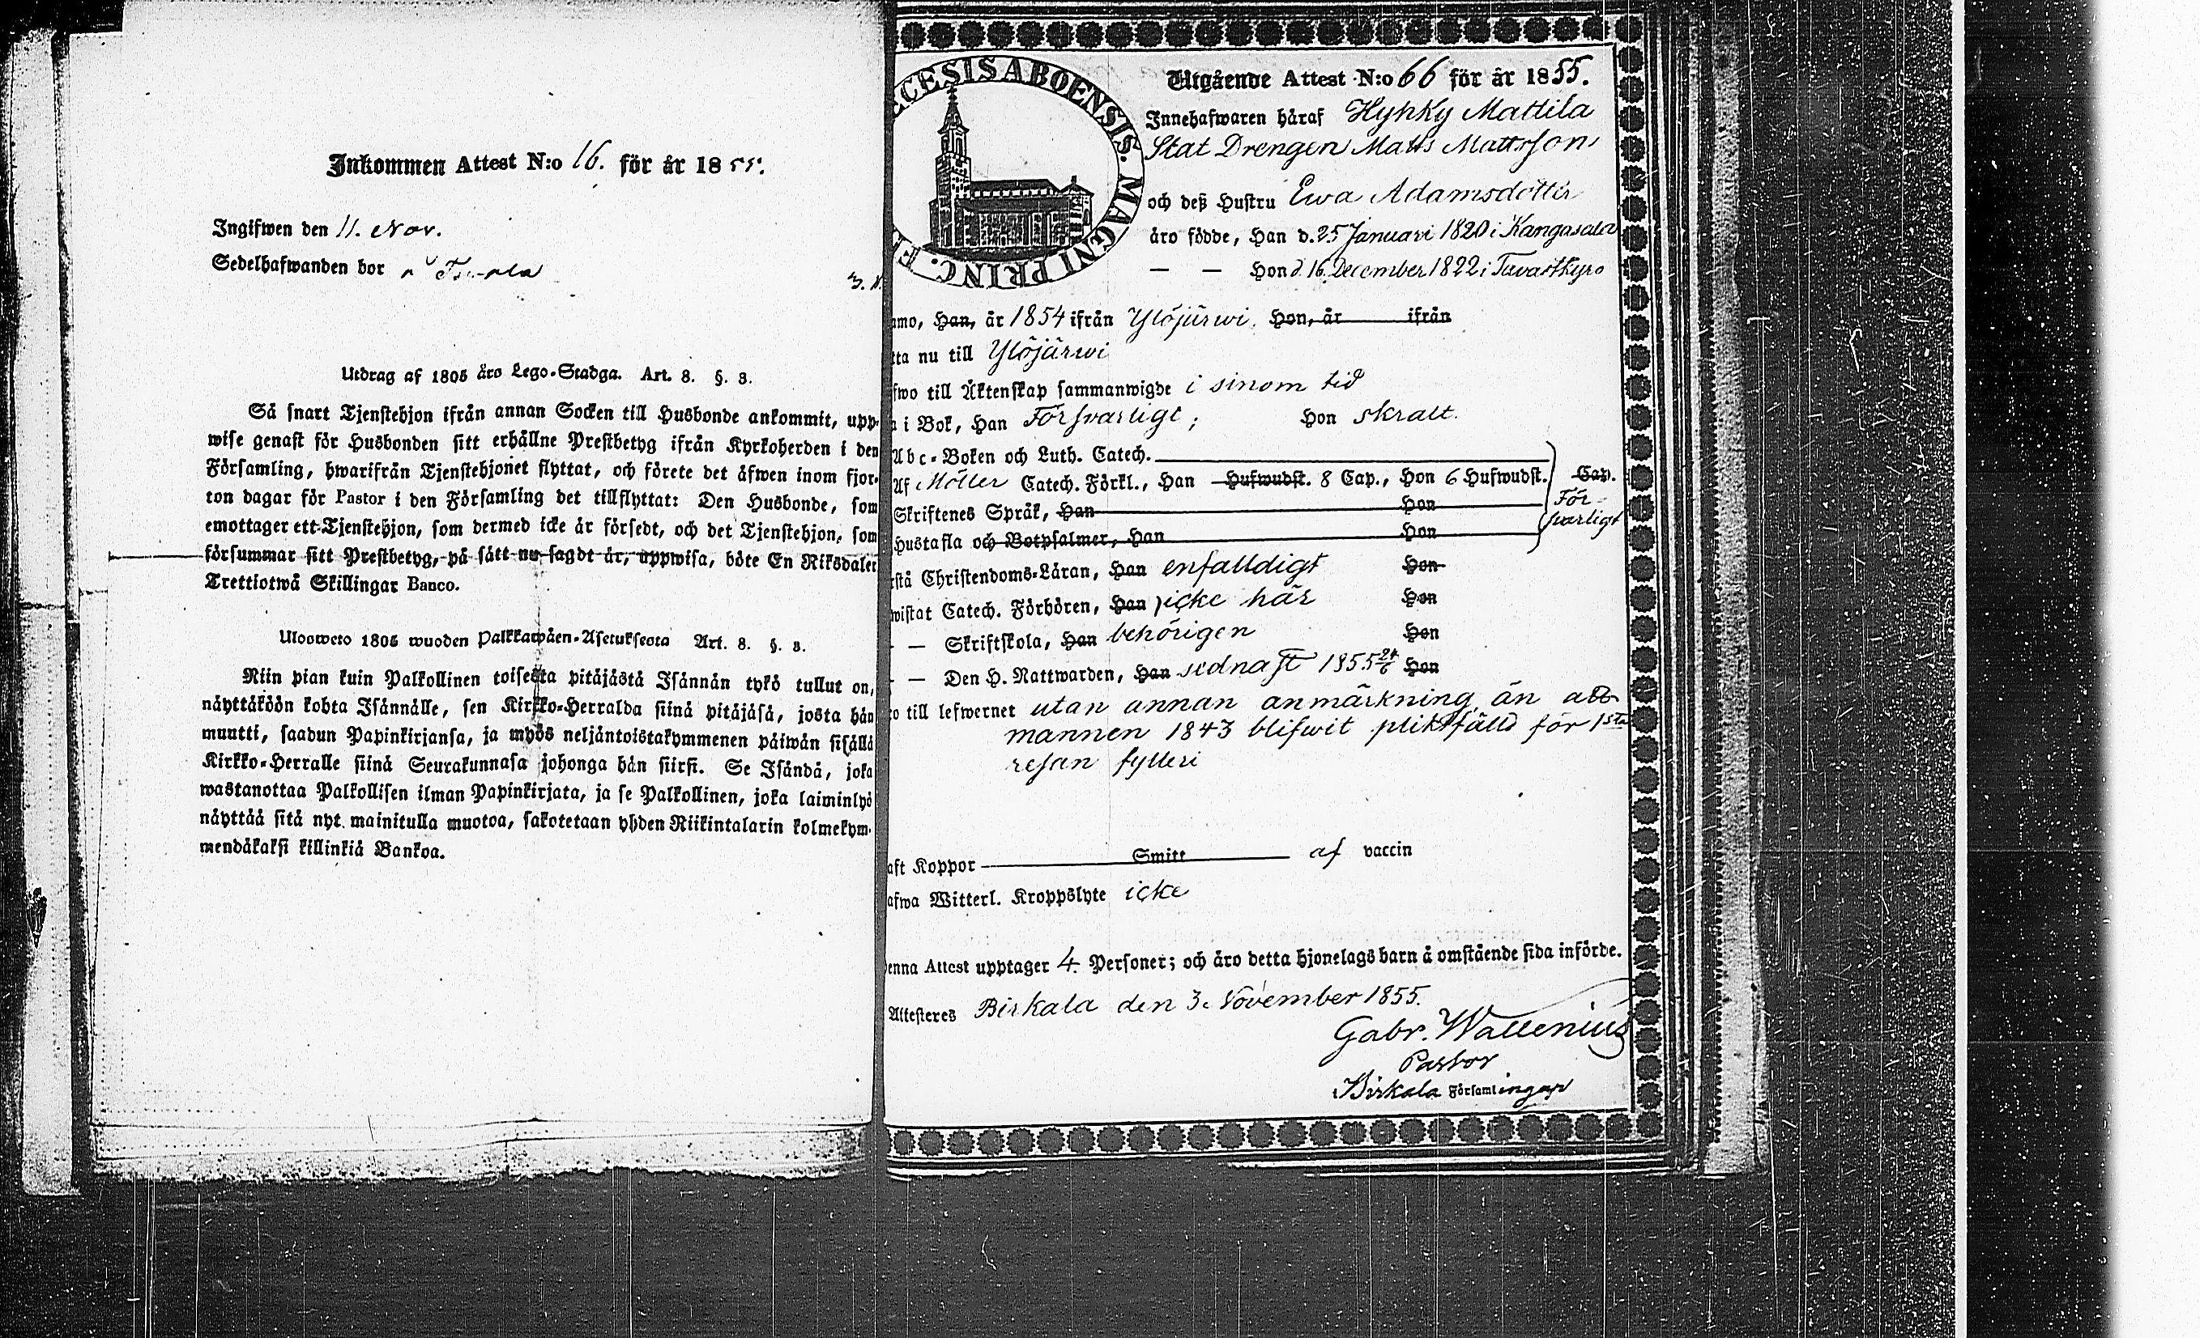 Inkommen Attest N:o 16. för år 1855.
Ingifwen den 11. Nov.
Sedelhafwanden bor
Utdrag af 1805 års Lego-Stadga. Art. 8. §. 3.
Så snart Tjenstehjon ifrån annan Socken till Husbonde ankommit, upp-
wise genast för Husbonden sitt erhållne Prestbetyg ifrån Kyrkoherden i den
Församling, hwarifrån Tjenstehjonet flyttat, och förete det äfwen inom fjor-
ton dagar för Pastor i den Församling det tillflyttat: Den Husbonde, som
emottager ett Tjenstehjon, som dermed icke är försedt, och det Tjenstehjon, som
försummar sitt Prestbetyg, på sätt nu sagdt är, uppwisa, böte En Riksdaler
Trettiotwå Skillingar Banco.
Ulosweto 1805 wuoden Palkkawäen-Asetuksesta Art. 8. §. 3.
Niin pian kuin Palkollinen toisesta pitäjästä Isännän tykö tullut on,
näyttäköön kohta Isännälle, sen Kirkko-Herralda siinä pitäjäsä, josta hän
muutti, saadun Papinkirjansa, ja myös neljäntoistakymmenen päiwän sisällä
Kirkko-Herralle siinä Seurakunnasa johonga hän siirsi. Se Isändä, joka
wastanottaa Palkollisen ilman Papinkirjata, ja se Palkollinen, joka laiminlyö
näyttää sitä nyt mainitulla muotoa, sakotetaan yhden Riikintalarin kolmekym-
mendäkaksi killinkiä Bankoa.
ECESIS ABOENSIS. MAGNI PRINC. F
Utgående Attest N:o 66 för år 1855.
Innehafwaren häraf Hyhky Mattila
Stat Drengen Matts Mattsson
och deß Hustru Ewa Adamsdotter
äro födde, Han d. 25 Januari 1820 i Kangasala
— — Hon d. 16 December 1822 i Tavastkyro
mo, Han, år 1854 ifrån Ylöjärwi. Hon, år ifrån
tta nu till Ylöjärwi
fwo till Äktenskap sammanwigde i sinom tid
i Bok, Han Försvarligt; Hon skralt.
Abc-Boken och Luth. Catech.
Af Möller Catech. Förkl., Han Hufwudst. 8 Cap., Hon 6 Hufwudst. Cap.
Skriftenes Språk, Han Hon För-
svarligt
Hustafla och Botpsalmer, Han Hon
stå Christendoms-Läran, Han enfalldigt Hon
wistat Catech. Förhören, Han icke här Hon
— — Skriftskola, Han behörigen Hon
— — Den H. Nattwarden, Han sednast 1855 24/6 Hon
o till lefwernet utan annan anmärkning än att
mannen 1843 blifwit pliktfälld för 1sta
resan fylleri
aft Koppor Smitt af vaccin
afwa Witterl. Kroppslyte icke
enna Attest upptager 4. Personer; och äro detta hjonelags barn å omstående sida införde.
Attesteres Birkala den 3. November 1855.
Gabr. Wallenius
Pastor
i Birkala Församlingar